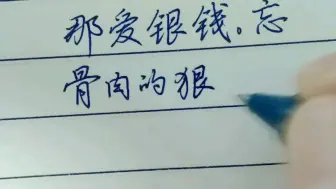 那爱银钱。忘
骨肉的狠